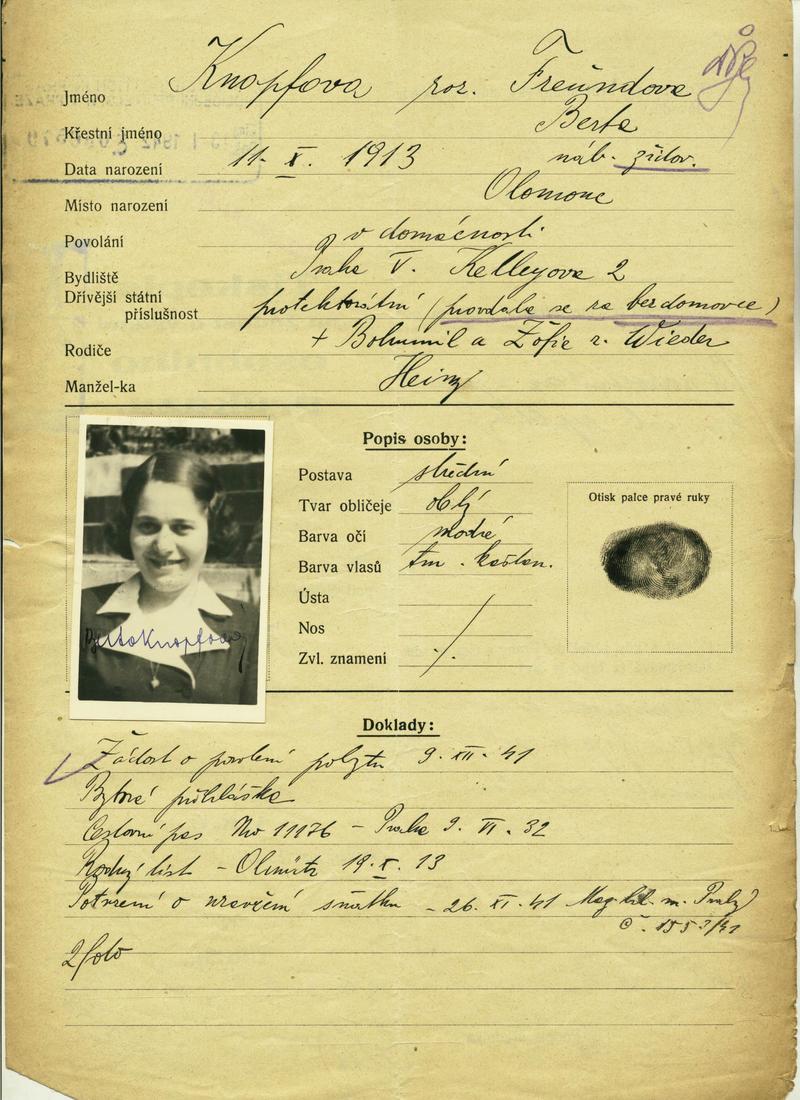 Jméno Knopfova roz. Freundova
Křestní jméno Berta
Data narození 11. X. 1913 náb. židov.
Místo narození Olomouc
Povolání v domácnosti
Bydliště Praha V. Kelleyova 2
Dřívější státní
příslušnost protektorátní (provdala se za bezdomovce)
Rodiče + Bohumil a Žofie r. Wieder
Manžel-ka Heinz
Popis osoby:
Postava střední
Tvar obličeje oblý
Barva očí modré
Barva vlasů tm. kaštan.
Ústa
Nos
Zvl. znamení
Otisk palce pravé ruky
Berta Knopfová
Doklady:
Žádost o povolení pobytu 9. XII. 41
Bytová přihláška
Cestovní pas No 11176 – Praha 9. VI. 32
Rodný list – Olmütz 19. X. 13
Potvrzení o uzavření sňatku – 26. XI. 41 Mag. hl. m. Prahy
č. 1553/41
2 foto